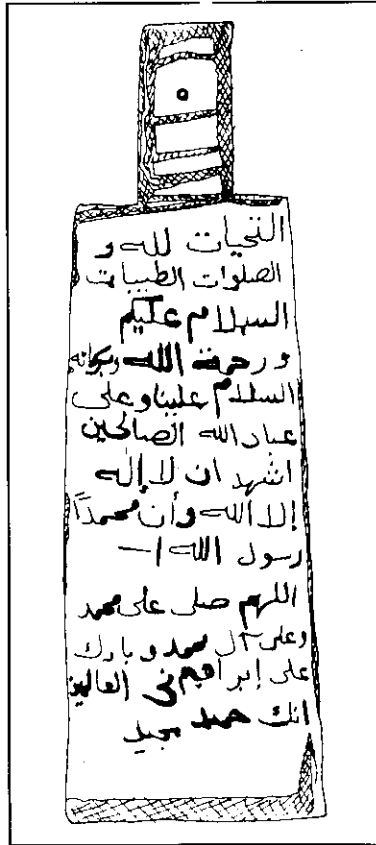 التحيات لله و
الصلوات الطيبات
السلام عليكم
و رحمة الله وبركاته
السلام علينا وعلى
عباد الله الصالحين
اشهد ان لا إله
إلا الله وأن محمداً
رسول الله ا—
اللهم صلى على محمد
وعلى آل محمد و بارك
على إبراهيم فى العالمين
انك حميد مجيد